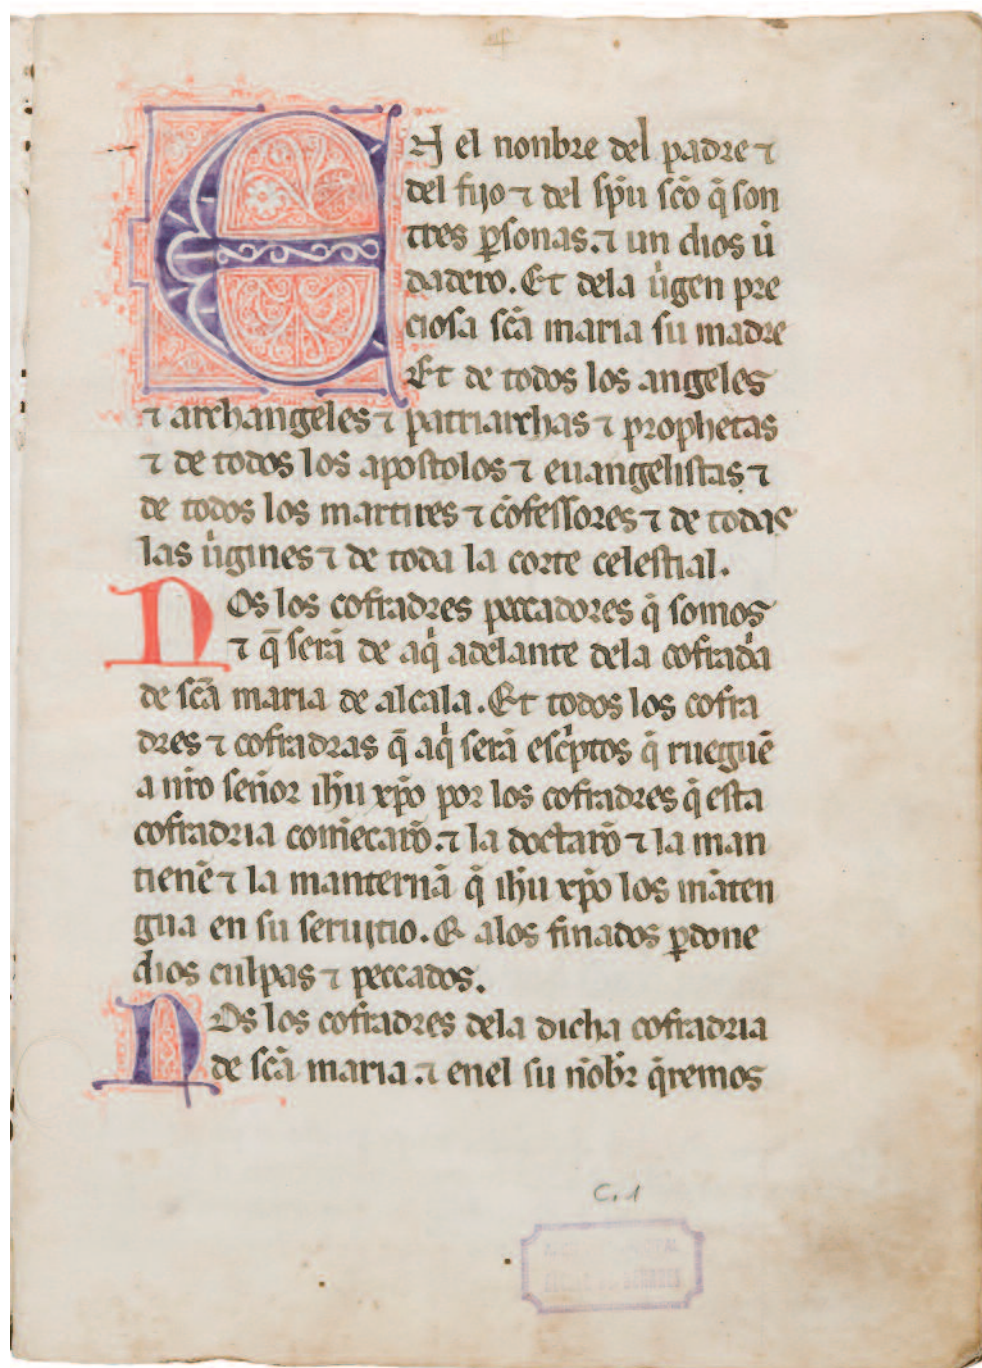 EN el nonbre del padre ⁊
del fijo ⁊ del sp̃u sc̃o q̃ son
tres ꝑsonas. ⁊ un dios ũ
dadero. Et dela ũgen pre
ciosa sc̃a maria su madre
Et de todos los angeles
⁊ archangeles ⁊ patriarchas ⁊ prophetas
⁊ de todos los apostolos ⁊ euangelistas ⁊
de todos los martires ⁊ cõfessores ⁊ de todas
las ũgines ⁊ de toda la corte celestial.
Nos los cofradres peccadores q̃ somos
⁊ q̃ serã de aq̃ adelante dela cofrad̃a
de sc̃a maria de alcala. Et todos los cofra
dres ⁊ cofradras q̃ aq̃ serã esc̃ptos q̃ rueguẽ
a nr̃o señor ih̃u xp̃o por los cofradres q̃ esta
cofradria comẽcarõ. ⁊ la doctarõ ⁊ la man
tienẽ ⁊ la manternã q̃ ih̃u xp̃o los mãten
gua en su seruitio. E alos finados ꝑdone
dios culpas ⁊ peccados.
Nos los cofradres dela dicha cofradria
de sc̃a maria. ⁊ enel su nõbr̃ q̃remos
C. 1